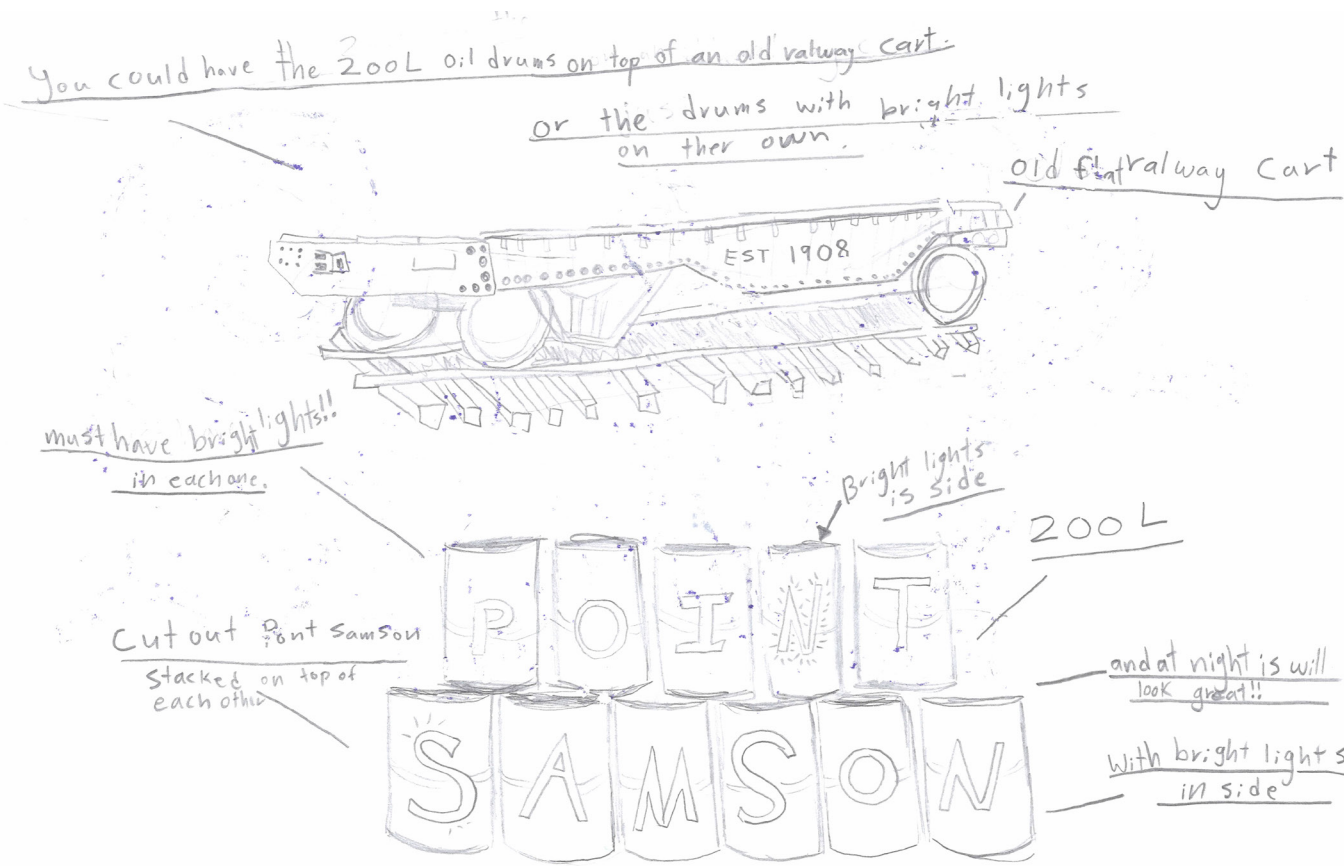 You could have the 200L oil drums on top of an old ralway cart.
or the drums with bright lights
on ther own.
old flat ralway cart
EST 1908
must have bright lights!!
in each one.
Bright lights
is side
200L
POINT
Cut out Pont Samson
Stacked on top of
each other
and at night is will
look great!!
SAMSON
with bright lights
in side